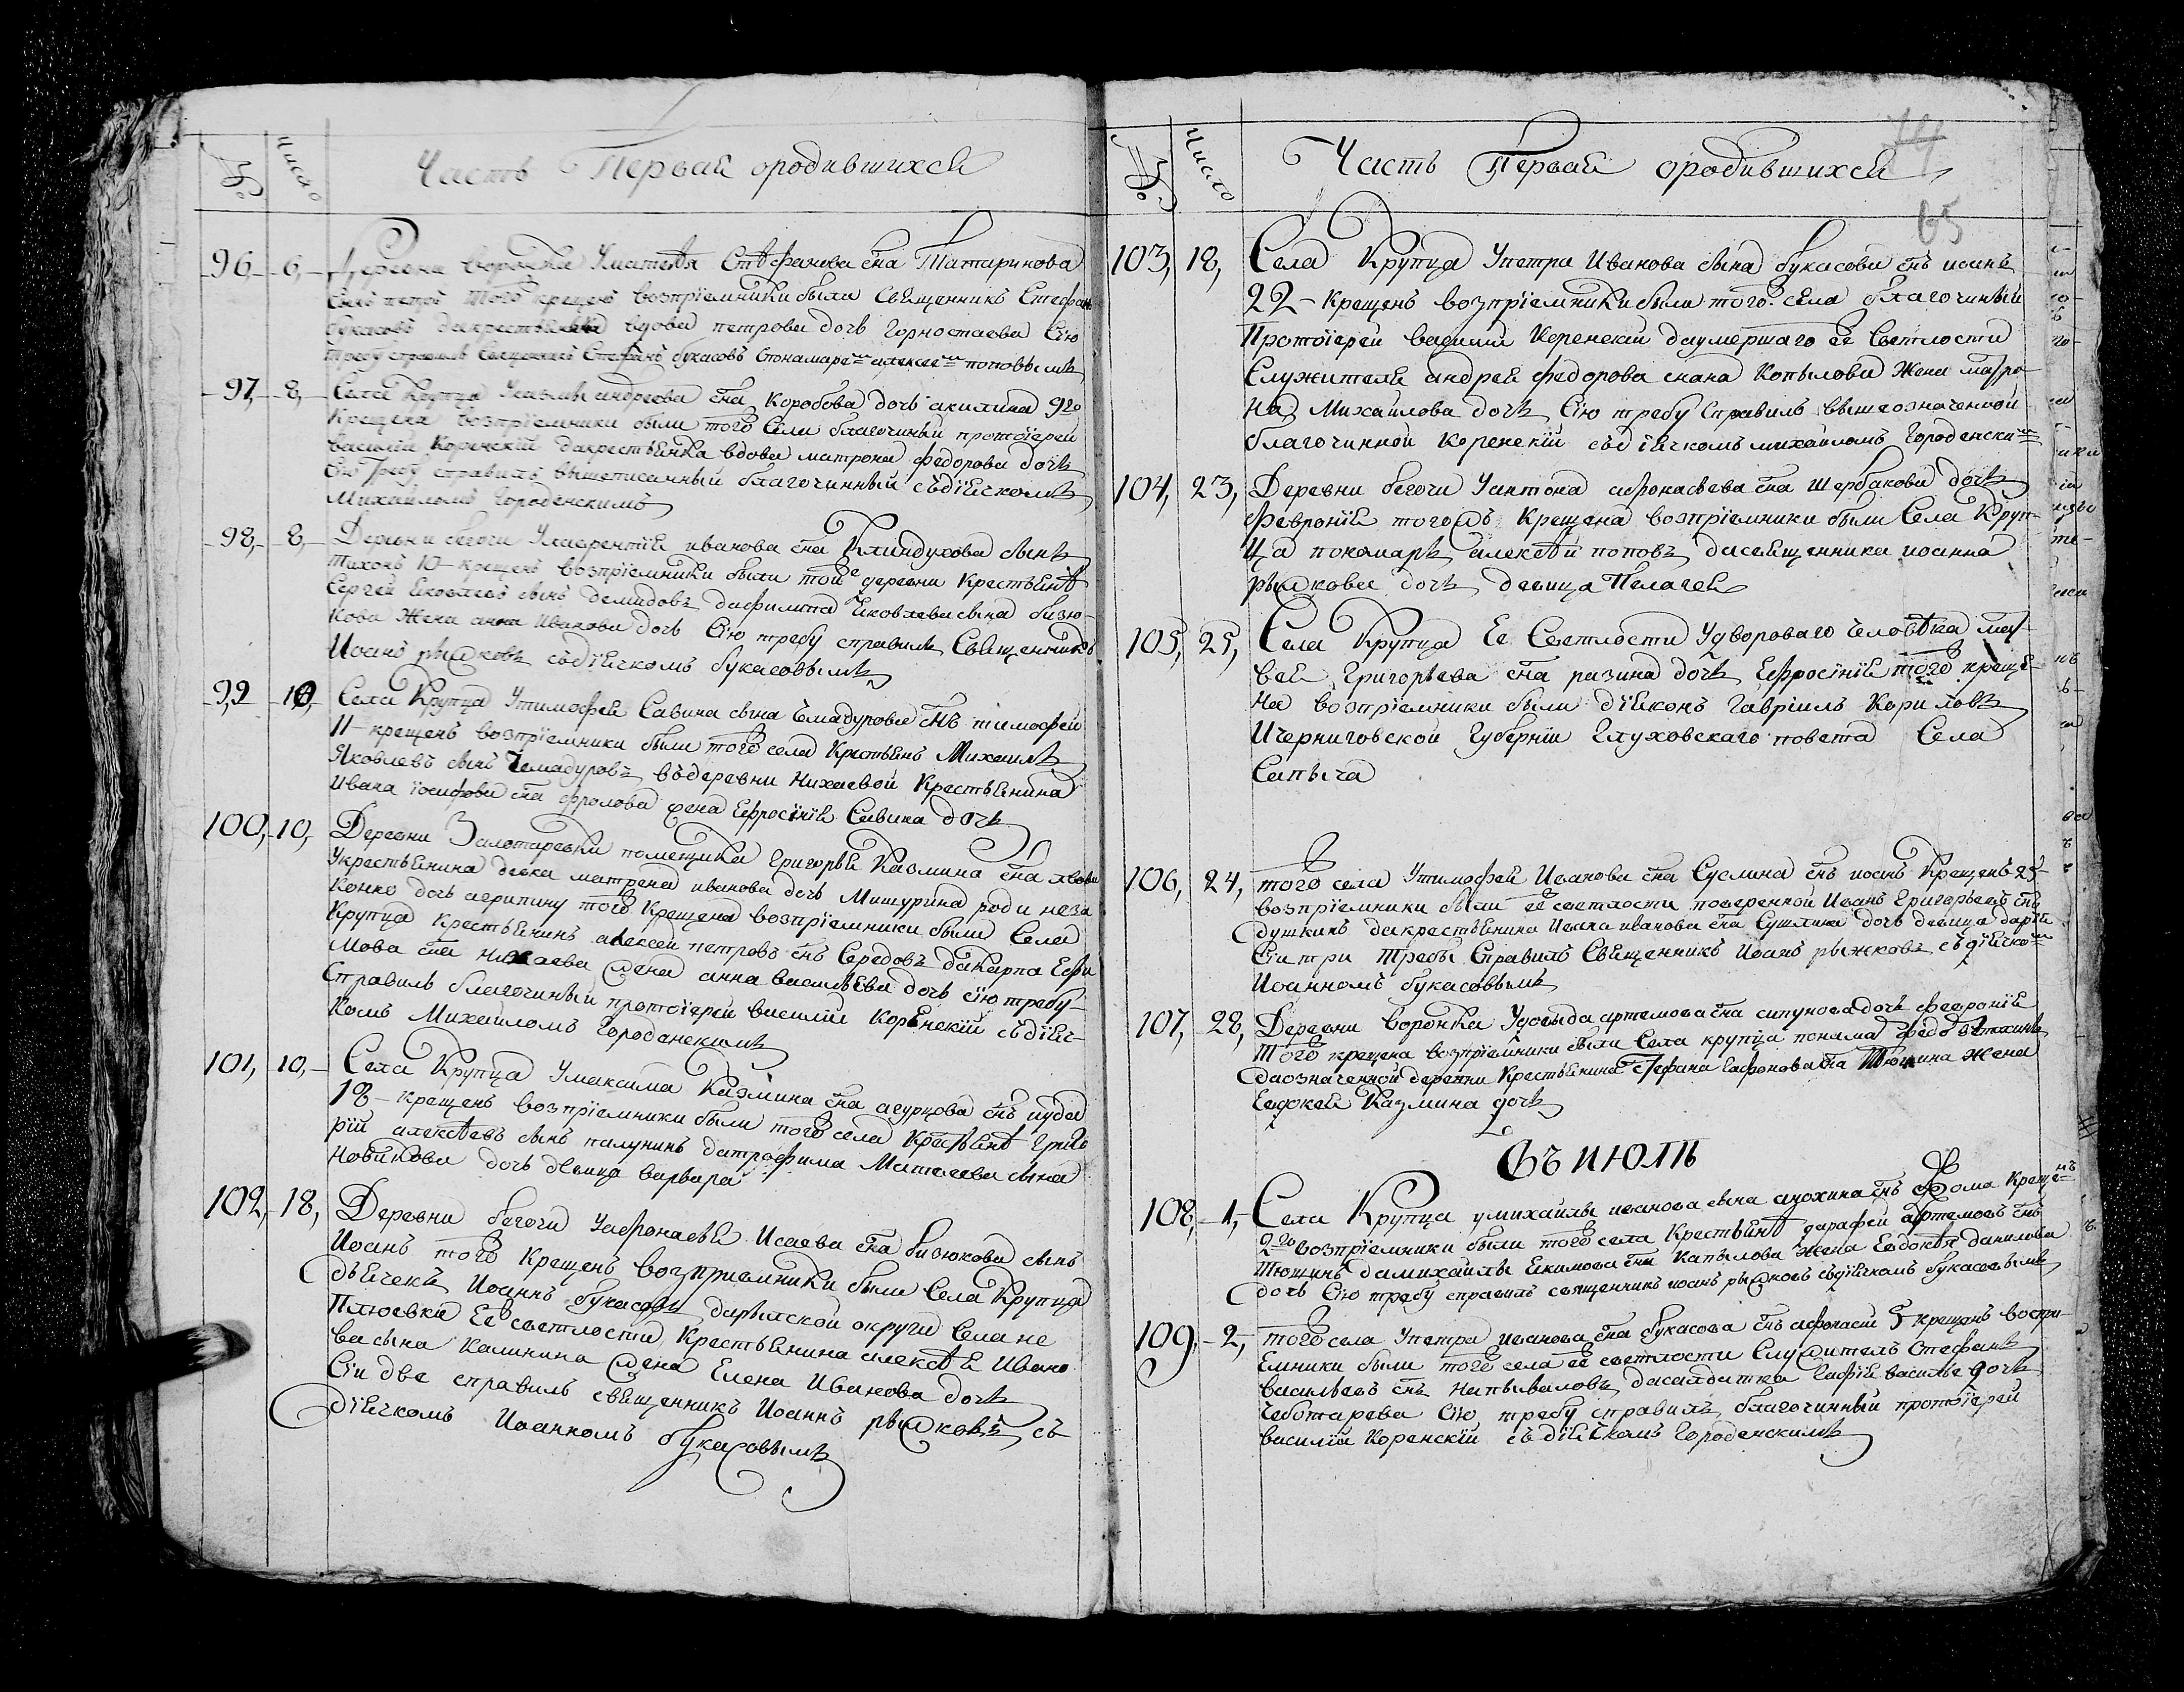 № Число Часть Первая ородившихся
96 6 Деревни воронка Уматвея Стефанова сна Татаринова
того крещенъ возпрiемники были Священникъ Стефанъ
букасовъ вдова петрова дочь горностаева Сiю
требу справилъ Священникъ Стефанъ букасовъ поповымъ
97 8 Села Крупца Указмы андреева сна коробова дочь акилина 9го
крещена возпрiемники были того Села благочиный протоiерей
василiй Коренскiй дакрестьянка вдова матрона федорова дочь
Сiю требу справилъ вышеписанный благочинный съдiячкомъ
Михаиломъ Городенскимъ
98 8 Деревни бегочи Улаврентiя иванова сна Клиндухова сынъ
Тихонъ 10 крещенъ возпрiемники были той деревни Крестьянъ
Сергей Яковлевъ сынъ демидовъ дафилипа Яковлева сына бизю-
кова жена анна Иванова дочь Сiю требу справилъ Священникъ
Иоанъ рыжковъ съдiячкомъ букасовымъ
99 10 Села Крупца Утимофея Савина сына Чемадурова снъ тимофей
11 крещенъ возпрiемники были того села Крестьянъ Михаилъ
Яковлевъ сынъ Чемадуровъ въдеревни Нихаевой Крестьянина
Ивана iосифова сна фролова жена Ефросiнiя Савина дочь
100 10 Деревни Залотаревки помещика Григорья Казмина сна львова
Укрестьянина девка матрена иванова дочь Мишурина роди неза
конно дочь агрипину того Крещена возпрiемники были Села
Крупца Крестьянинъ алексей петровъ снъ Середовъ дакарпа Ефи
мова сна Нихаева жена анна васильева дочь сiю требу
Справилъ благочиный протоiерей василiй Коренскiй съдiяч-
комъ Михаиломъ Городенскимъ
101 10 Села Крупца Умаксима Казмина сна агурцова снъ
18 крещенъ возпрiемники были того села Крестьянъ Григо
рiй алексеевъ сынъ палунинъ датрофима Матвеева сына
новикова дочь девица варвара
102 18 Деревни бегочи Уафонасья Исаева сна бизюкова сынъ
Иоанъ того Крещенъ возприемники были Села Крупца
дьячекъ Иоаннъ букасовъ дарыльской округи Села не
плюевки Ее светлости Крестьянина алексея Ивано
ва сына Калинина жена Елена Иванова дочь
Сiи две справилъ священникъ Иоаннъ рыжковъ съ
дiячкомъ Иоанномъ букасовымъ
№ Число Часть Первая ородившихся
65
103 18 Села Крупца Упетра Иванова сына букасова снъ иоанъ
22 крещенъ возпрiемники были того села благочиный
Протоiерей василiй Коренскiй даумершаго ее Светлости
Служителя андрея федорова снана Копылова жена матро
на Михаилова дочь Сiю требу Справилъ вышеозначеной
благочинной Коренскiй съдiячкомъ михаиломъ Городенски
104 23 Деревни бегочи Уантона афонасьева сна Щербакова дочь
Феврониiя тогожъ крещена возпрiемники были Села Круп-
ца пономарь алексей поповъ дасвященника иоанна
рыжкова дочь девица Пелагея
105 25 Села Крупца Ее Светлости Удвороваго человека мат
вея Григорьева сна разина дочь Ефросiнiя того креще-
на возпрiемники были дiяконъ Гаврiилъ Кориловъ
Ичерниговской Губернiи Глуховскаго повета Села
Сапыча
106 24 того села Утимофея Иванова сна Суслина снъ иоанъ Крещенъ 25
возпрiемники были ее светлости поверенной Иванъ Григорьевъ снъ
душкинъ дакрестьянина Ивана иванова сна Сушлина дочь девица дарiя
Сiи три требы Справилъ Священникъ Иоанъ рыжковъ съдiячко
Иоанномъ букасовымъ
107 28 Деревни воронка Удавыда артемова сна сипунова дочь феврониiя
того крещена возпрiемники были Села крупца понама
даозначенной деревни Крестьянина Стефана Гафонова сна Тюнина жена
Евдокея Казмина дочь
Въ ИЮЛѢ
108 1 Села Крупца умихаилы иванова сына анохина снъ Фома Креще
2го возпрiемники были того села Крестьянъ дарафей артемовъ снъ
Тюшинъ дамихаилы Екимова сна Капылова жена Евдокея данилова
дочь Сiю требу справилъ священникъ иоанъ рыжковъ съдiячкомъ букасовымъ
109 2 того села Упетра иванова сна букасова снъ афонасiй 5 крещенъ воспри
емники были того села ее светлости Служитель Стефанъ
васильевъ снъ Напываловъ дасалдатка Гафiя василье дочь
чеботарева Сiю требу справилъ благочинный протоiерей
василiй Коренскiй съдiячкомъ Городенскимъ